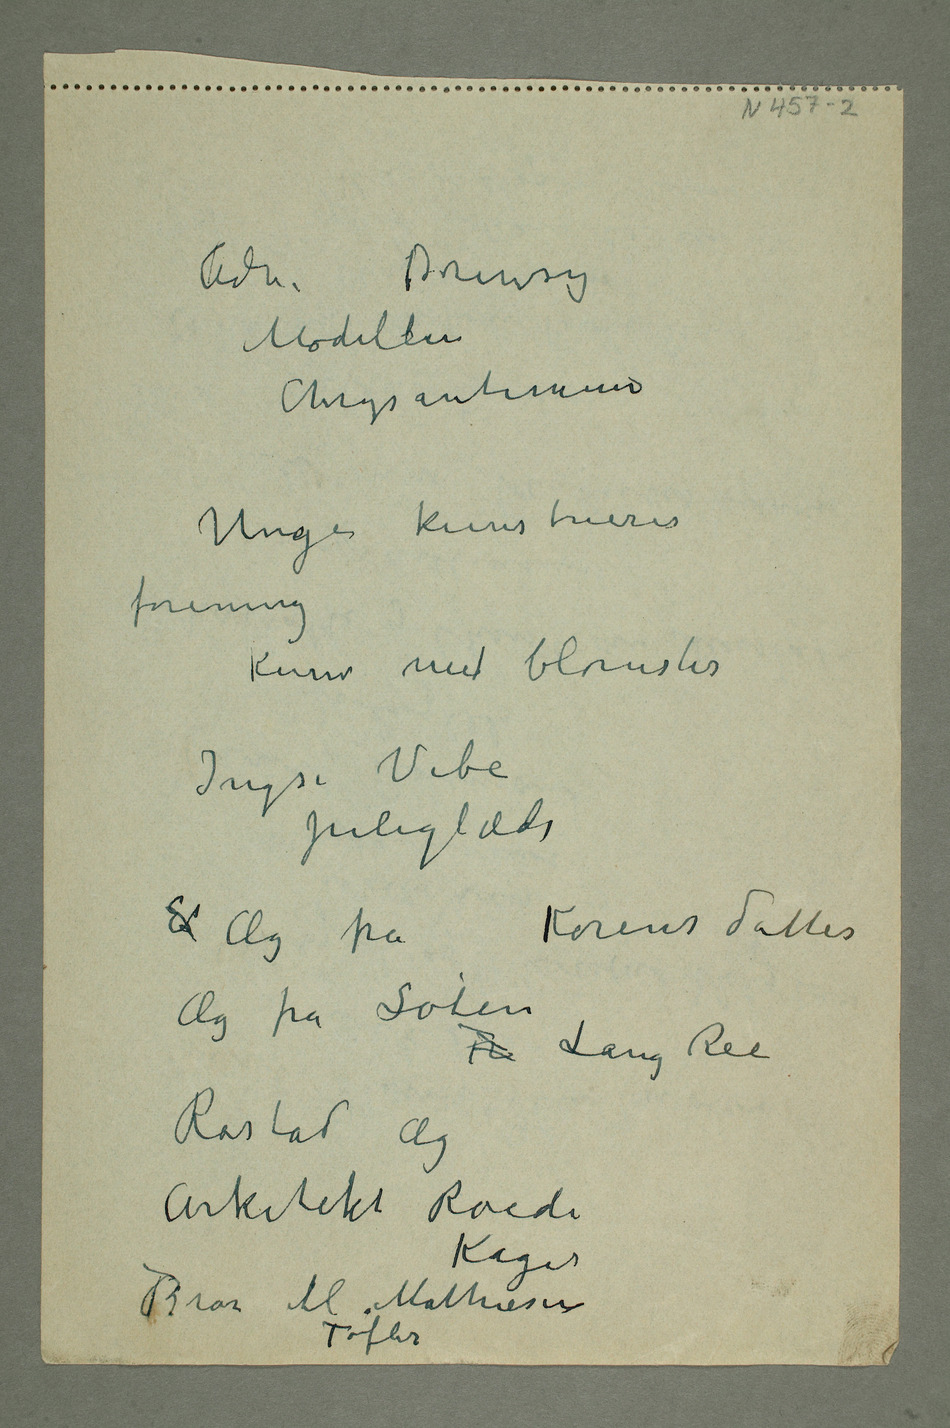 N 457-2
Adr. Drewsy
Modellen
Chrysantemum
Unge kunstneres
forening
Kurv med blomster
Inger Vibe
juleglæde
Æg fra Korens datter
Æg fra Soten
Lang Ree
Rastad Æg
Arkitekt Roede
Kager
Bror M. Mathiesen
Tøfler